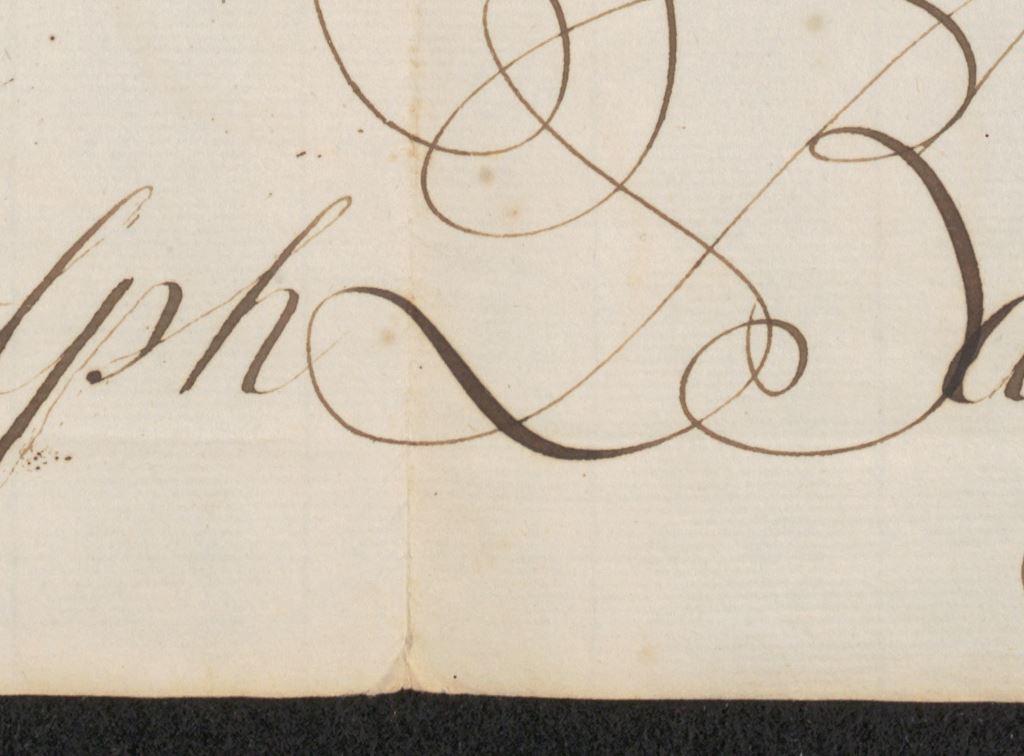 lph Ba